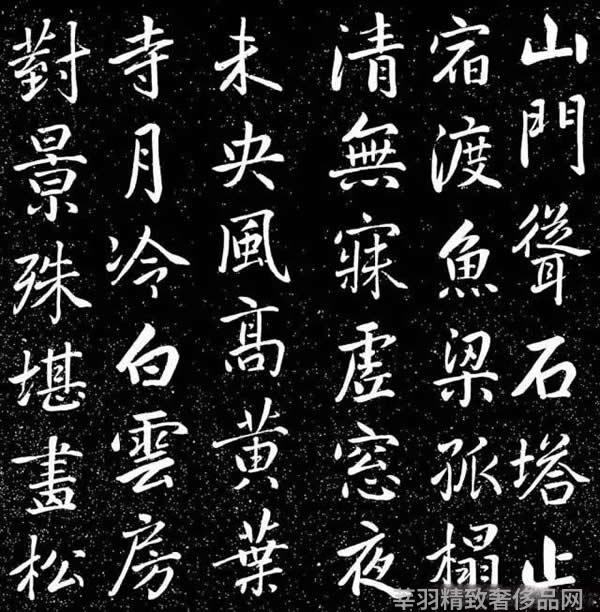 山門聳石塔止
宿渡魚梁孤榻
清無寐虛窓夜
未央風高黃葉
寺月冷白雲房
對景殊堪畫松
莘羽精致奢侈品网